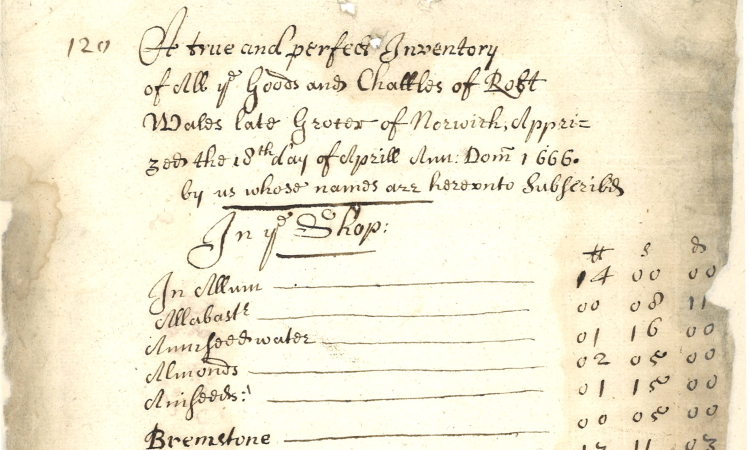 120 A true and perfect Inventory
of All yᵉ Goods and Chattles of Robt
Wales late Grocer of Norwich, Appri=
zed the 18th day of Aprill Ann: Dom 1666.
by us whose names are hereunto Subscribed
In yᵉ Shop:
li s d
In Allum 14 00 00
Allabastr 00 08 11
Anniseed water 01 16 00
Almonds 02 05 00
Aniseeds: 01 15 00
00 05 00
Bremstone 11 03